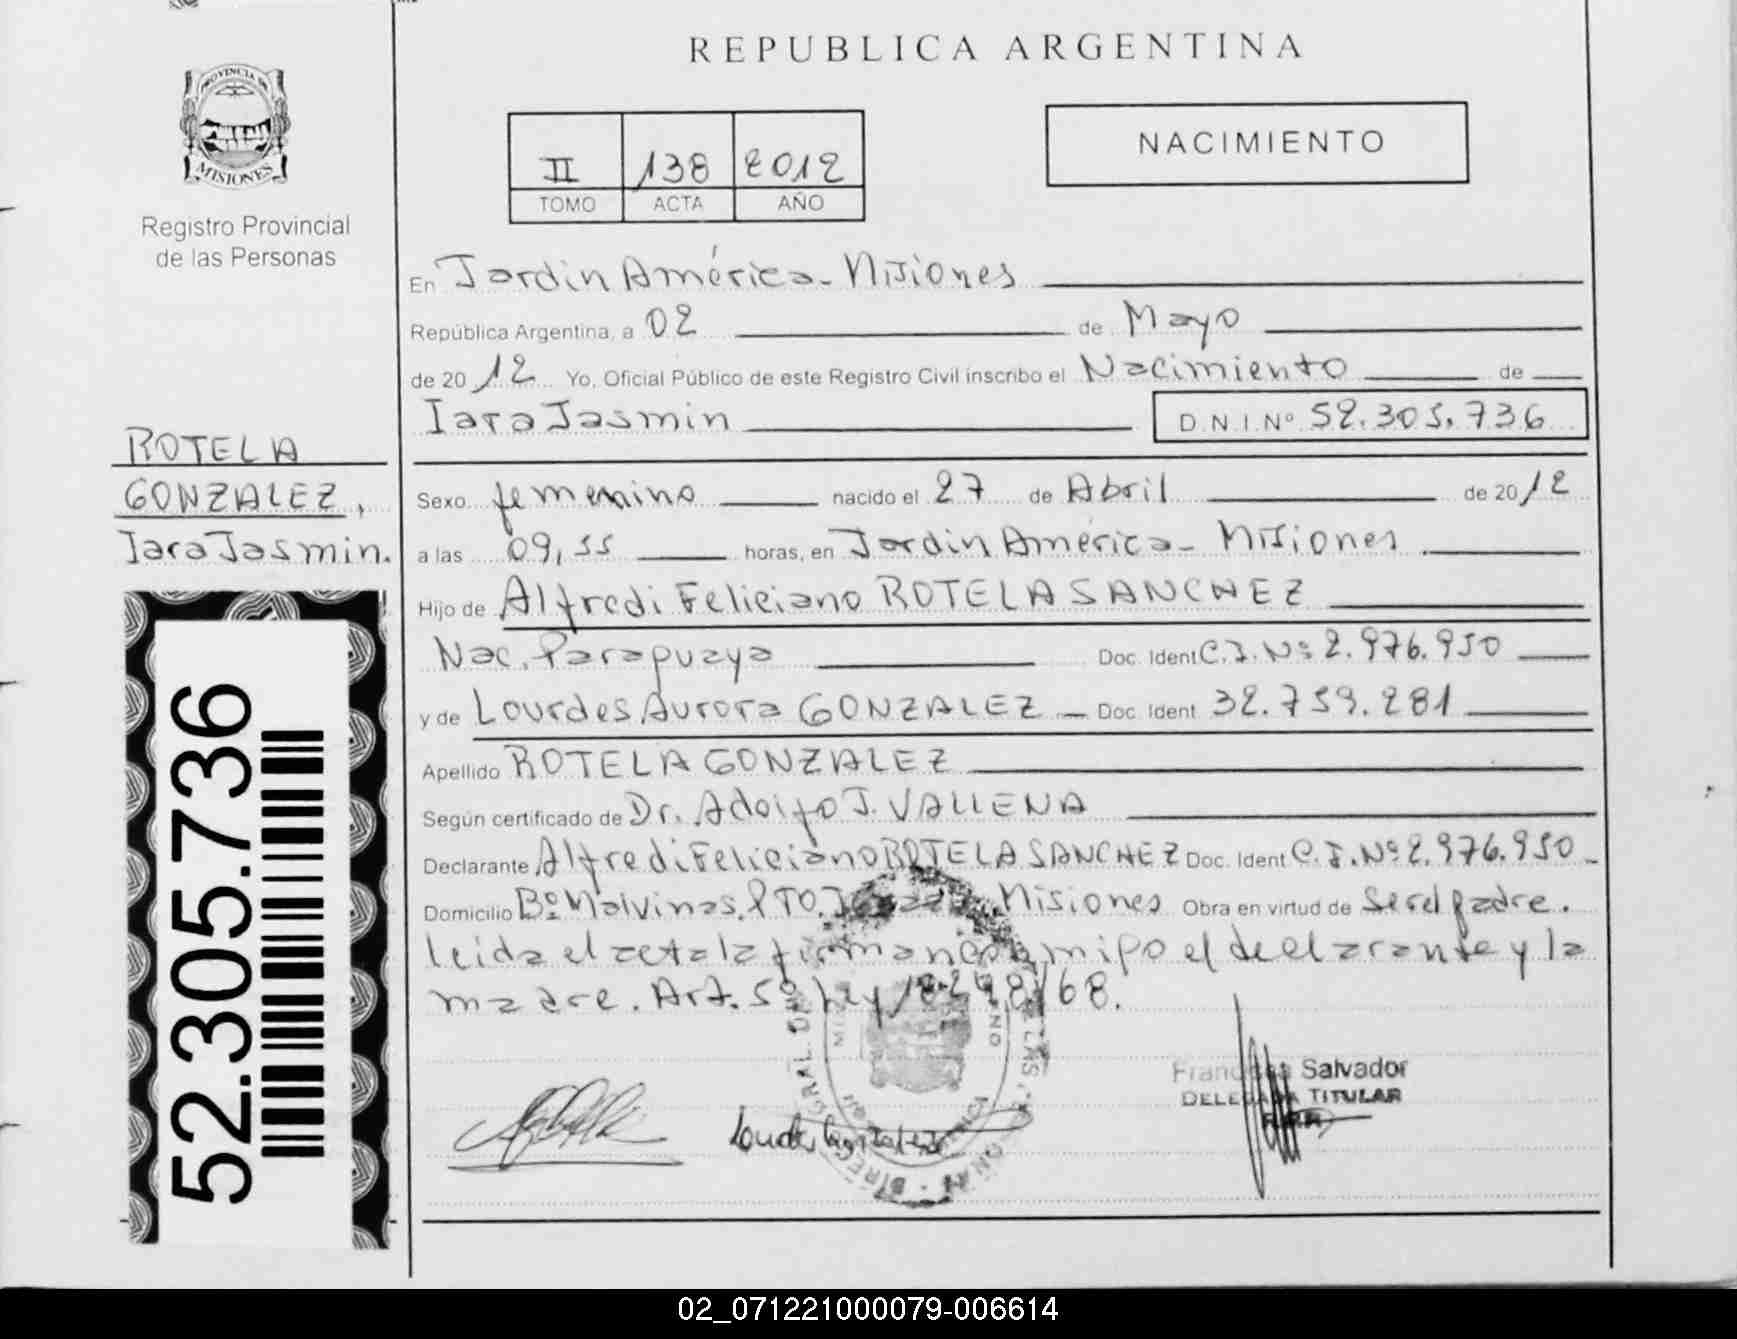 REPUBLICA ARGENTINA
PROVINCIA DE
MISIONES
Registro Provincial
de las Personas
II 138 2012
TOMO ACTA AÑO
NACIMIENTO
En Jardin América - Misiones
República Argentina, a 02 de Mayo
de 2012 Yo, Oficial Público de este Registro Civil inscribo el Nacimiento de
Iara Jasmin D.N.I.Nº 52.305.736
ROTELA
GONZALEZ,
Iara Jasmin.
Sexo femenino nacido el 27 de Abril de 2012
a las 09,55 horas, en Jardin América - Misiones
Hijo de Alfredi Feliciano ROTELA SANCHEZ
Nac. Paraguaya Doc. Ident C.I. Nº 2.976.950
y de Lourdes Aurora GONZALEZ - Doc. Ident 32.759.281
Apellido ROTELA GONZALEZ
Según certificado de Dr. Adolfo J. VALLENA
Declarante Alfredi Feliciano ROTELA SANCHEZ Doc. Ident C.I. Nº 2.976.950
Domicilio Bº Malvinas. PTO. Misiones Obra en virtud de Ser el padre.
leida el acta la firman conmigo el declarante y la
madre. Art. 5º Ley 18.248/68.
52.305.736
Salvador
TITULAR
02_071221000079-006614